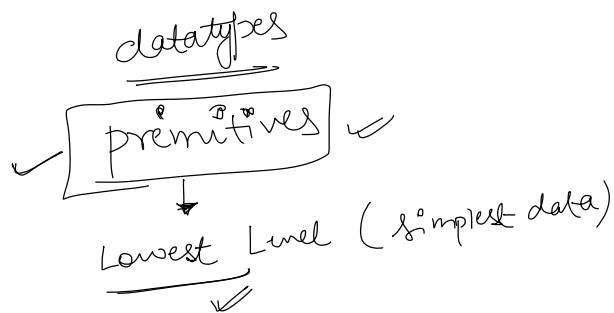 datatypes
premitives
Lowest Level (simplest data)